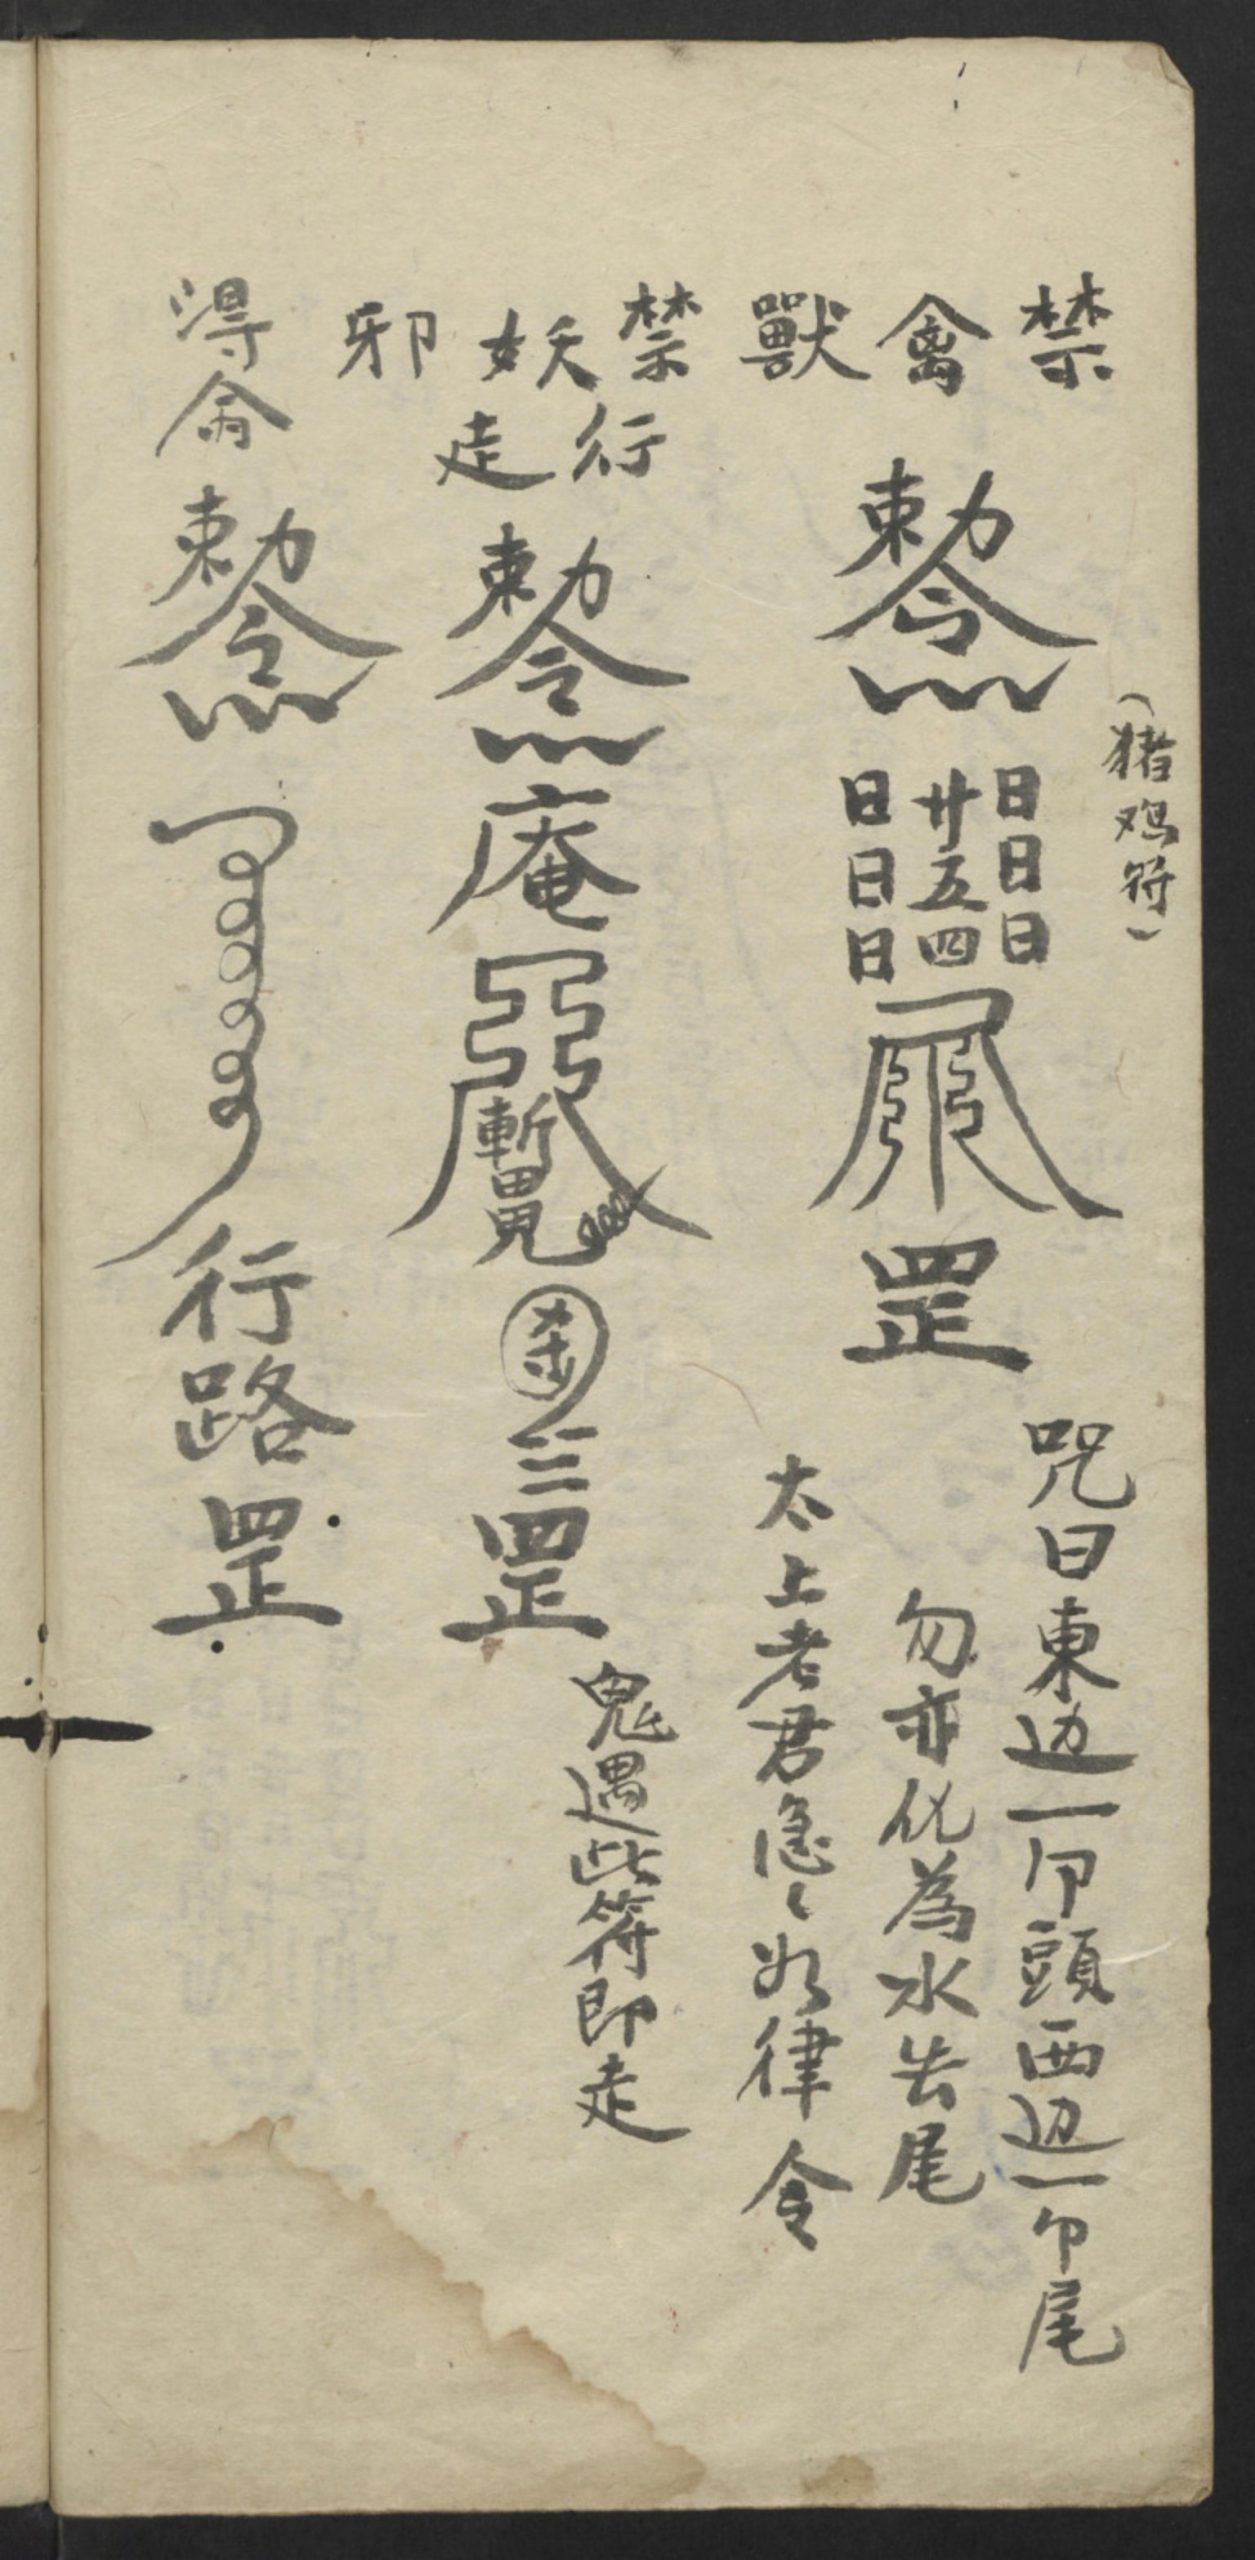 禁禽獸
敕令
日日日
廿五四
日日日
罡
(猪鸡符)
咒曰東边一卩頭西边一卩尾
勿亦化為水去尾
太上老君急〻如律令
禁妖邪
行走
敕令
庵
罡
鬼遇此符即走
敕令
行路罡